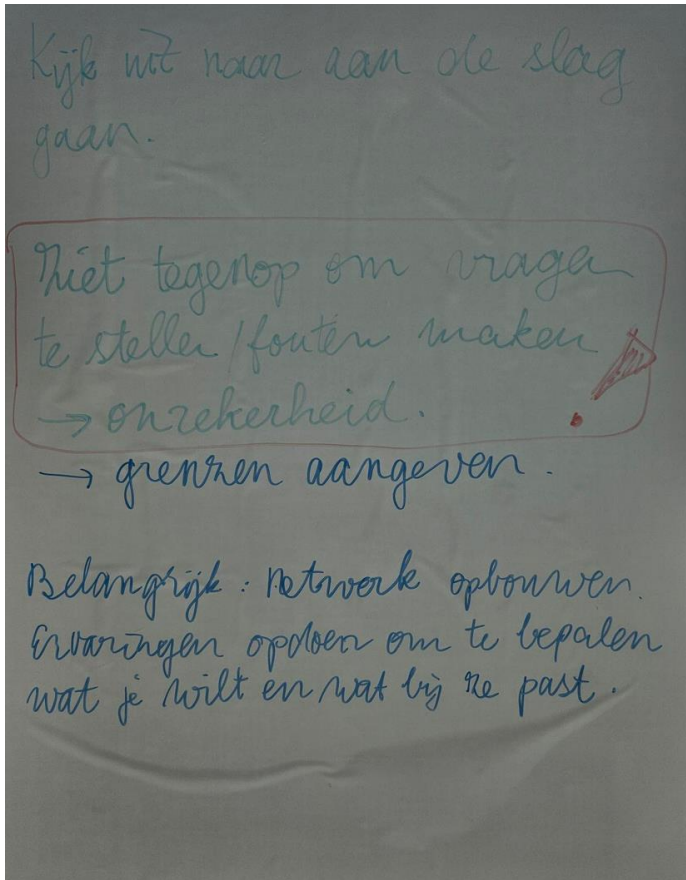 Kijk uit naar aan de slag
gaan.
Ziet tegenop om vragen
te stellen / fouten maken
→ onzekerheid.
→ grenzen aangeven.
Belangrijk: Netwerk opbouwen.
Ervaringen opdoen om te bepalen
wat je wilt en wat bij je past.